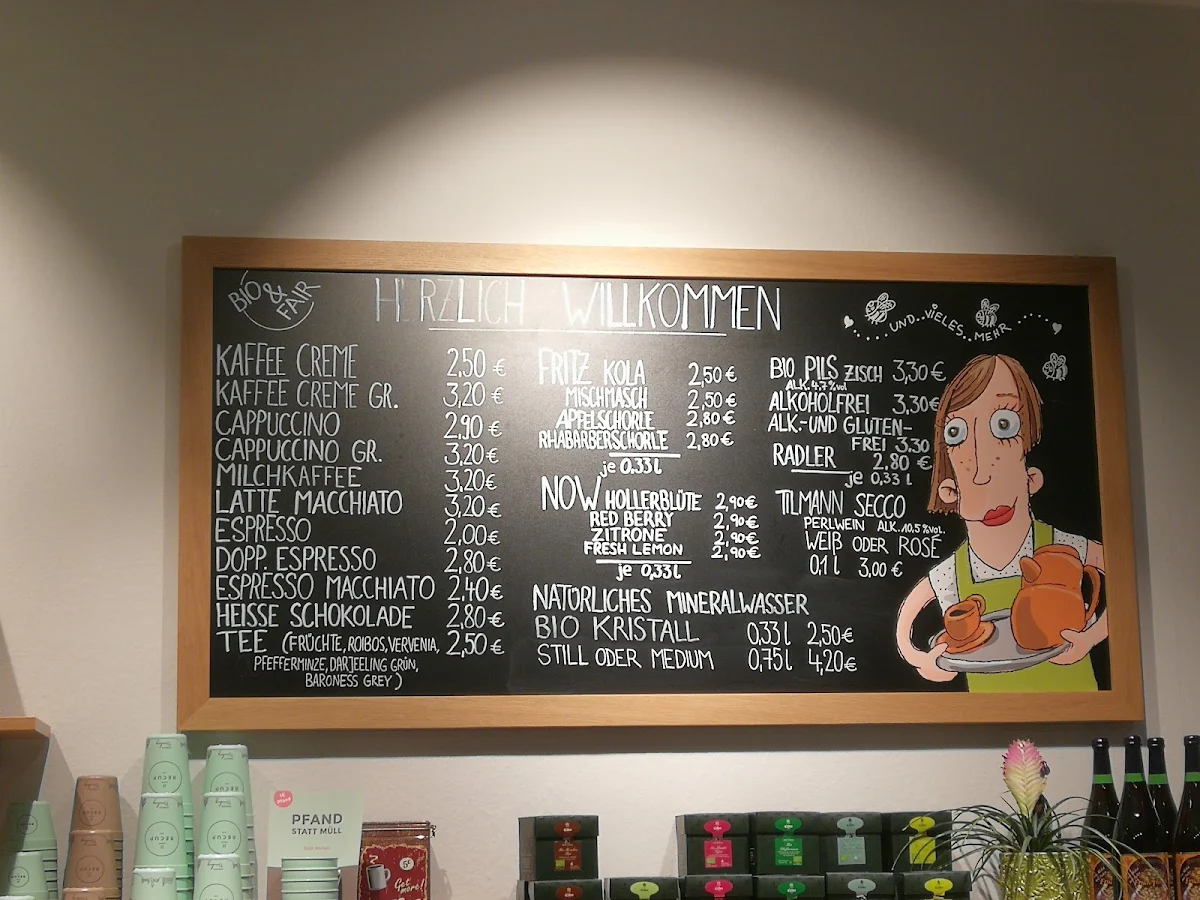 BIO & FAIR
HERZLICH WILLKOMMEN
UND..VIELES..MEHR
KAFFEE CREME 2,50 €
KAFFEE CREME GR. 3,20 €
CAPPUCCINO 2,90 €
CAPPUCCINO GR. 3,20€
MILCHKAFFEE 3,20€
LATTE MACCHIATO 3,20€
ESPRESSO 2,00€
DOPP. ESPRESSO 2,80€
ESPRESSO MACCHIATO 2,40€
HEISSE SCHOKOLADE 2,80€
TEE (FRÜCHTE, ROIBOS, VERVENIA, 2,50€
PFEFFERMINZE, DARJEELING GRÜN,
BARONESS GREY)
FRITZ KOLA 2,50€
MISCHMASCH 2,50€
APFELSCHORLE 2,80€
RHABARBERSCHORLE 2,80€
je 0,33 l
NOW HOLLERBLÜTE 2,90€
RED BERRY 2,90€
ZITRONE 2,90€
FRESH LEMON 2,90€
je 0,33 l
NATÜRLICHES MINERALWASSER
BIO KRISTALL 0,33 l 2,50€
STILL ODER MEDIUM 0,75 l 4,20€
BIO PILS ZISCH 3,30€
ALK. 4,7 % vol
ALKOHOLFREI 3,30€
ALK.-UND GLUTEN-
FREI 3,30
RADLER 2,80 €
je 0,33 l
TILMANN SECCO
PERLWEIN ALK. 10,5 % vol.
WEIß ODER ROSÉ
0,1 l 3,00 €
RECUP
RECUP
PFAND
STATT MÜLL
Get
more!